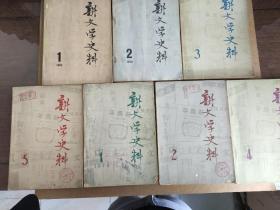 新文学史料
1
新文学史料
2
新文学史料
3
新文学史料
5
新文学史料
1
新文学史料
2
新文学
4